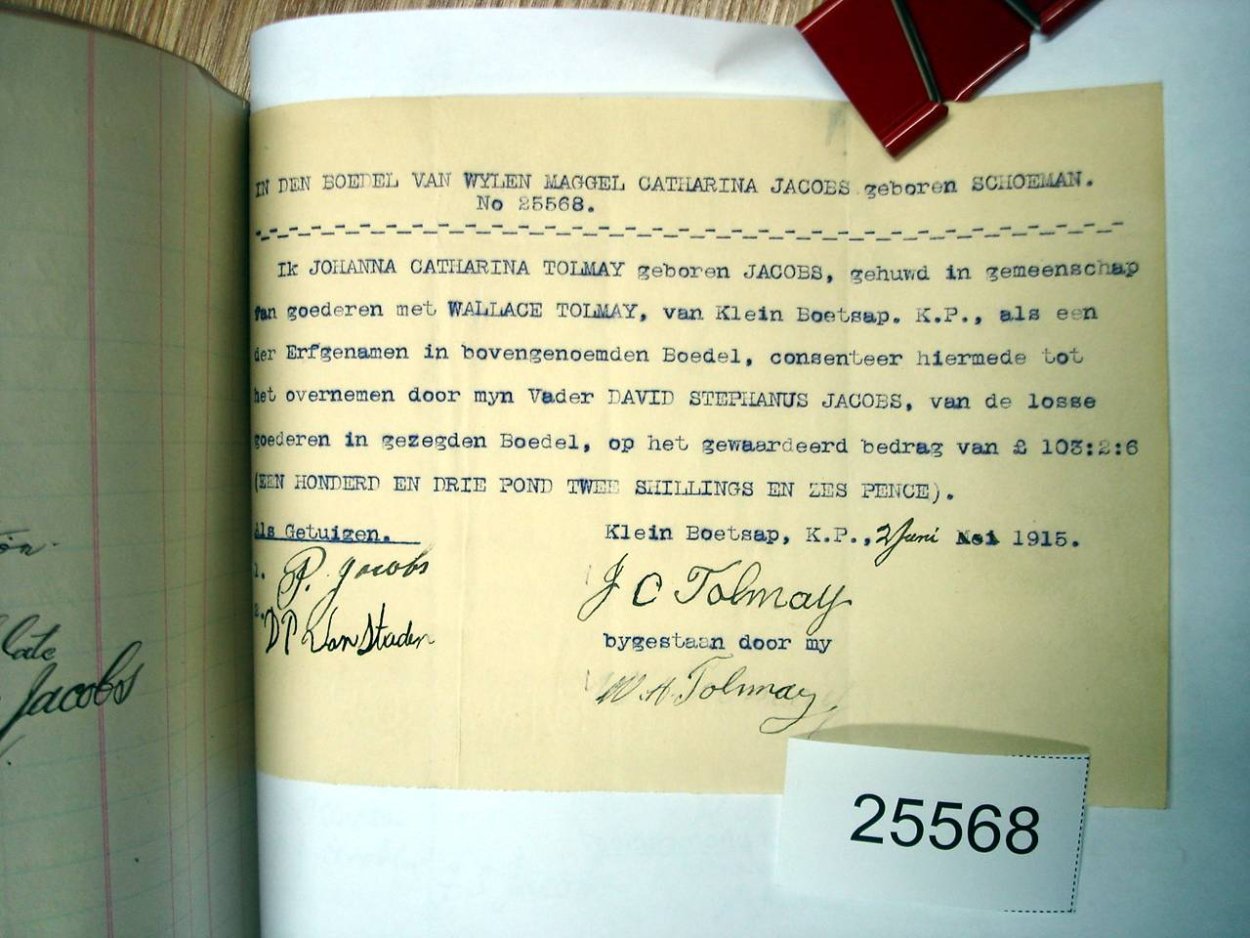 IN DEN BOEDEL VAN WYLEN MAGGEL CATHARINA JACOBS geboren SCHOEMAN.
No 25568.
Ik JOHANNA CATHARINA TOLMAY geboren JACOBS, gehuwd in gemeenschap
van goederen met WALLACE TOLMAY, van Klein Boetsap. K.P., als een
der Erfgenamen in bovengenoemden Boedel, consenteer hiermede tot
het overnemen door myn Vader DAVID STEPHANUS JACOBS, van de losse
goederen in gezegden Boedel, op het gewaardeerd bedrag van £ 103:2:6
(EEN HONDERD EN DRIE POND TWEE SHILLINGS EN ZES PENCE).
Als Getuigen.
Klein Boetsap, K.P., 2 Juni Mei 1915.
1. P. Jacobs
J C Tolmay
2. D P Van Staden
bygestaan door my
W. A. Tolmay
late
Jacobs
25568